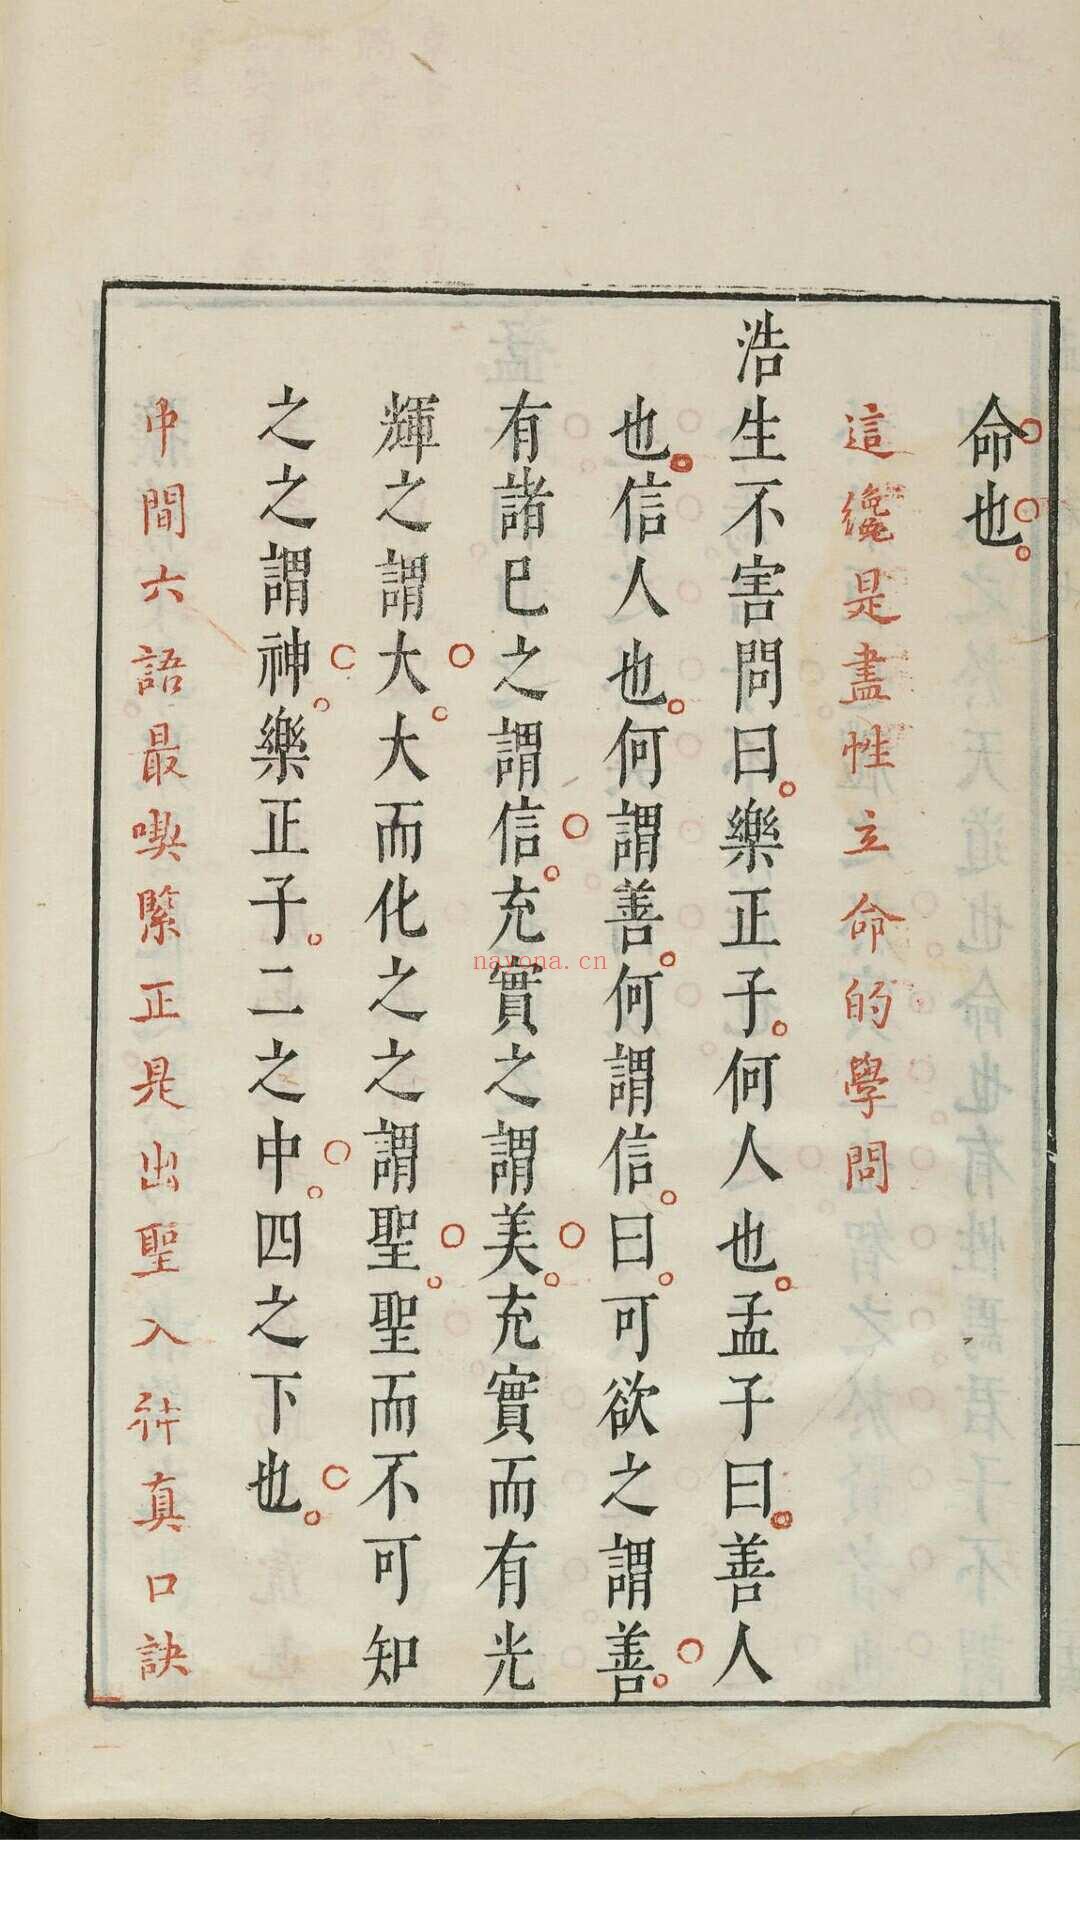 命也
這纔是盡性立命的學問
浩生不害問曰樂正子何人也孟子曰善人
也信人也何謂善何謂信曰可欲之謂善
有諸已之謂信充實之謂美充實而有光
輝之謂大大而化之之謂聖聖而不可知
之之謂神樂正子二之中四之下也
中間六語最喫緊正是出聖入神真口訣
nayona.cn